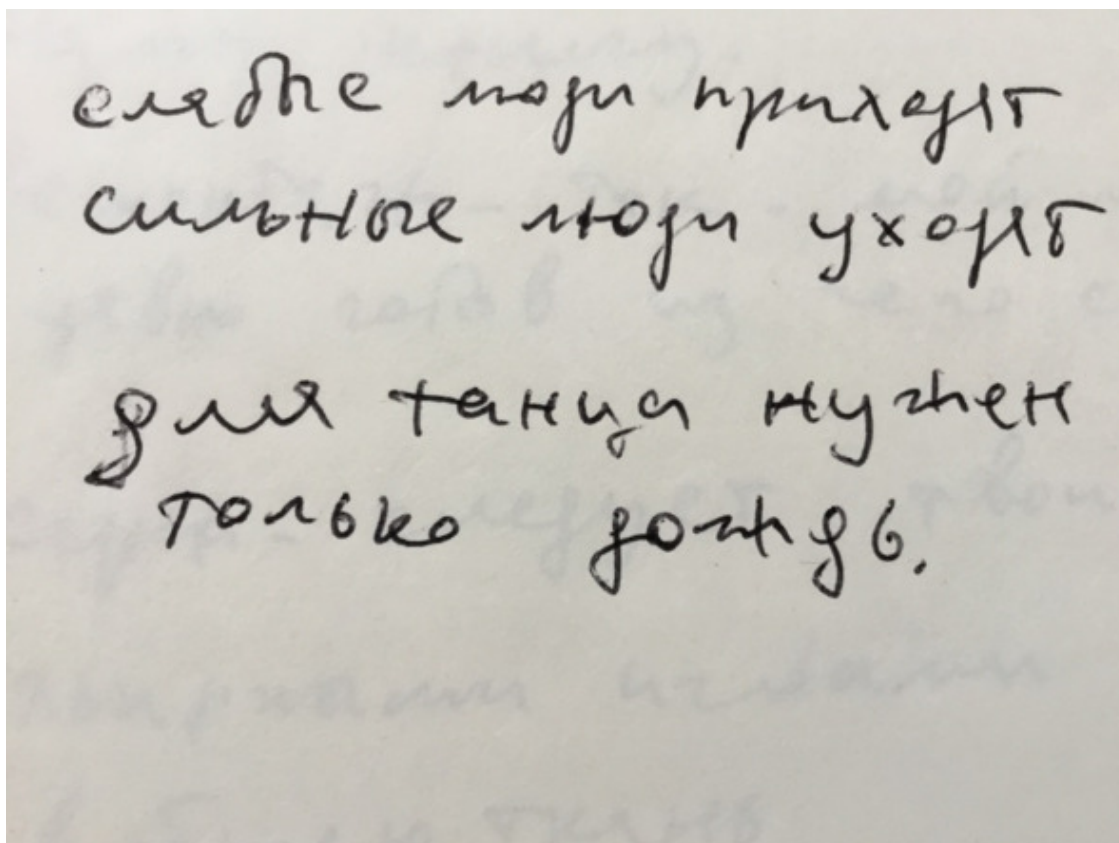 слабые люди приходят
сильные люди уходят
для танца нужен
только дождь.